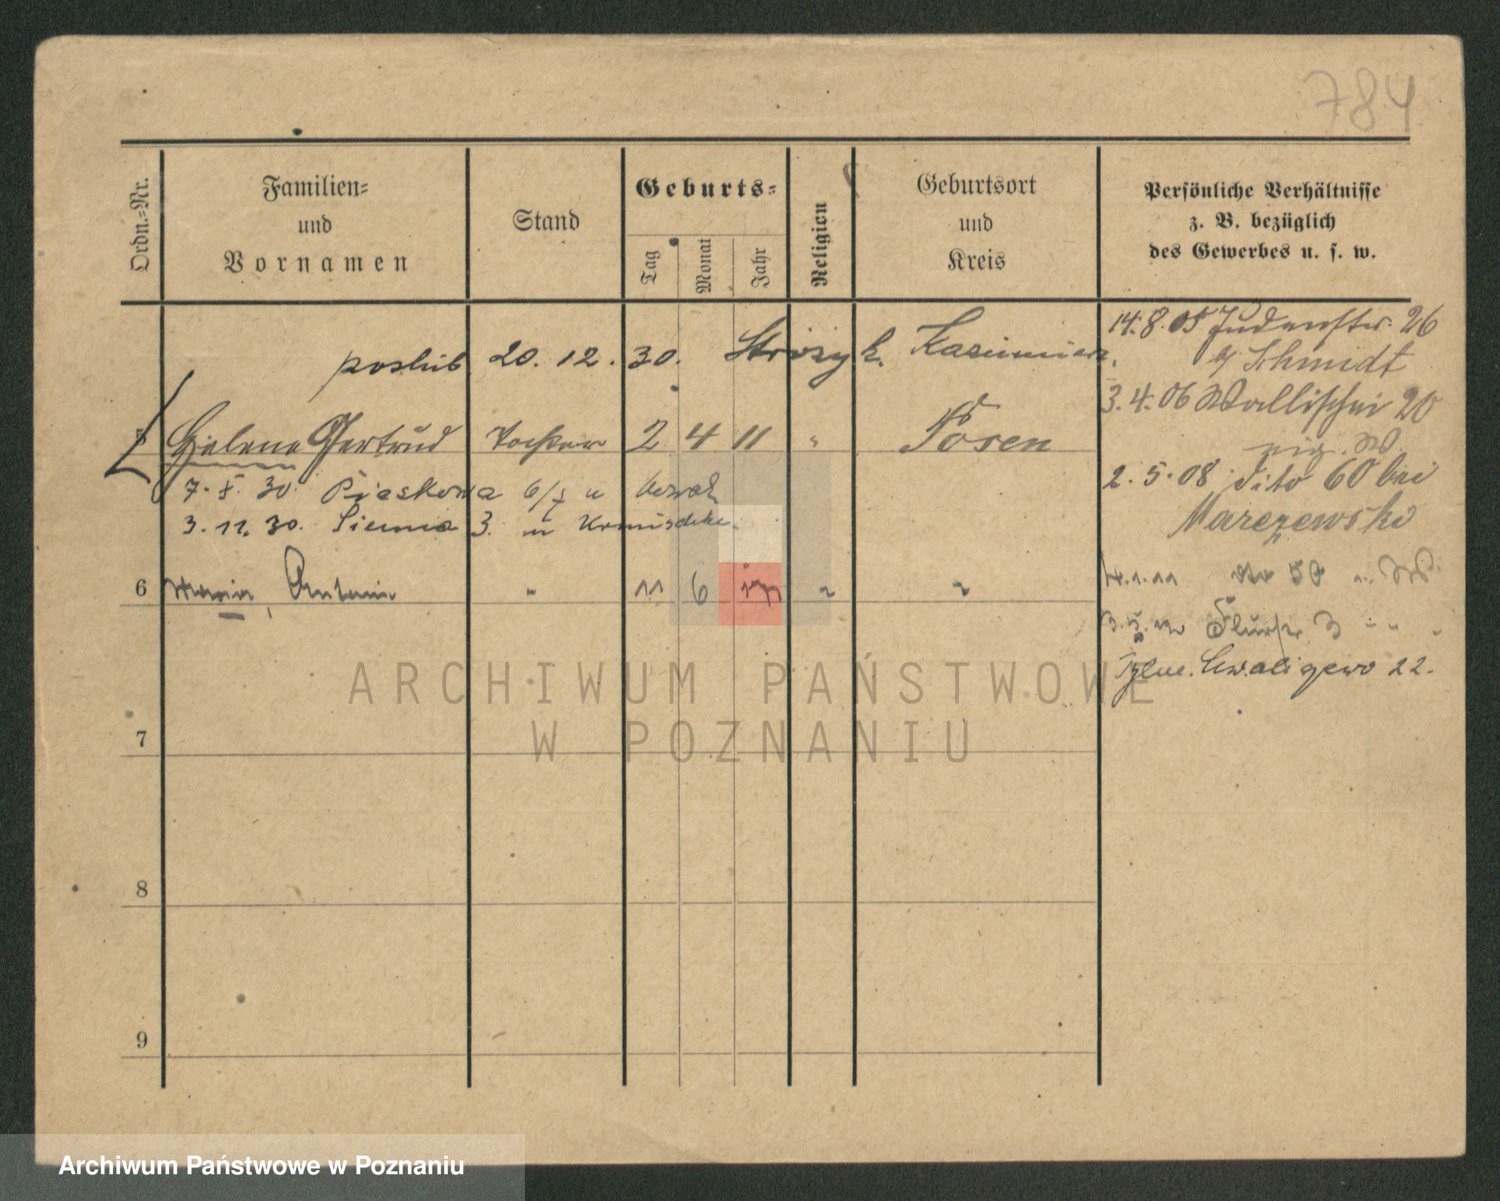 784
Ordn.-Nr.
Familien-
und
Vornamen
Stand
Geburts-
Tag
Monat
Jahr
Religion
Geburtsort
und
Kreis
Persönliche Verhältnisse
z. B. bezüglich
des Gewerbes u. s. w.
14.8.05 Judenstr. 26
poslub 20. 12. 30. Kazimierz.
Schmidt
3.4.06 Wallischei 20
5 Helene Gertrud Tochter 2 4 11 " Posen
7. 30. Piaskowa 6/7 u
2.5.08 dito 60 bei
3. 11. 30. Sienna 3. u
Marczewski
6 Maria, Antonie " 11 6 " "
4.1.11
Flurstr. 3 " "
Cwaliszewo 22.
7
8
9
ARCHIWUM PAŃSTWOWE
W POZNANIU
Archiwum Państwowe w Poznaniu